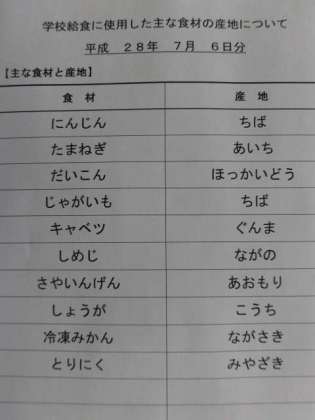 学校給食に使用した主な食材の産地について
平成　２８年　７月　６日分
【主な食材と産地】
食　材　産　地
にんじん　ちば
たまねぎ　あいち
だいこん　ほっかいどう
じゃがいも　ちば
キャベツ　ぐんま
しめじ　ながの
さやいんげん　あおもり
しょうが　こうち
冷凍みかん　ながさき
とりにく　みやざき